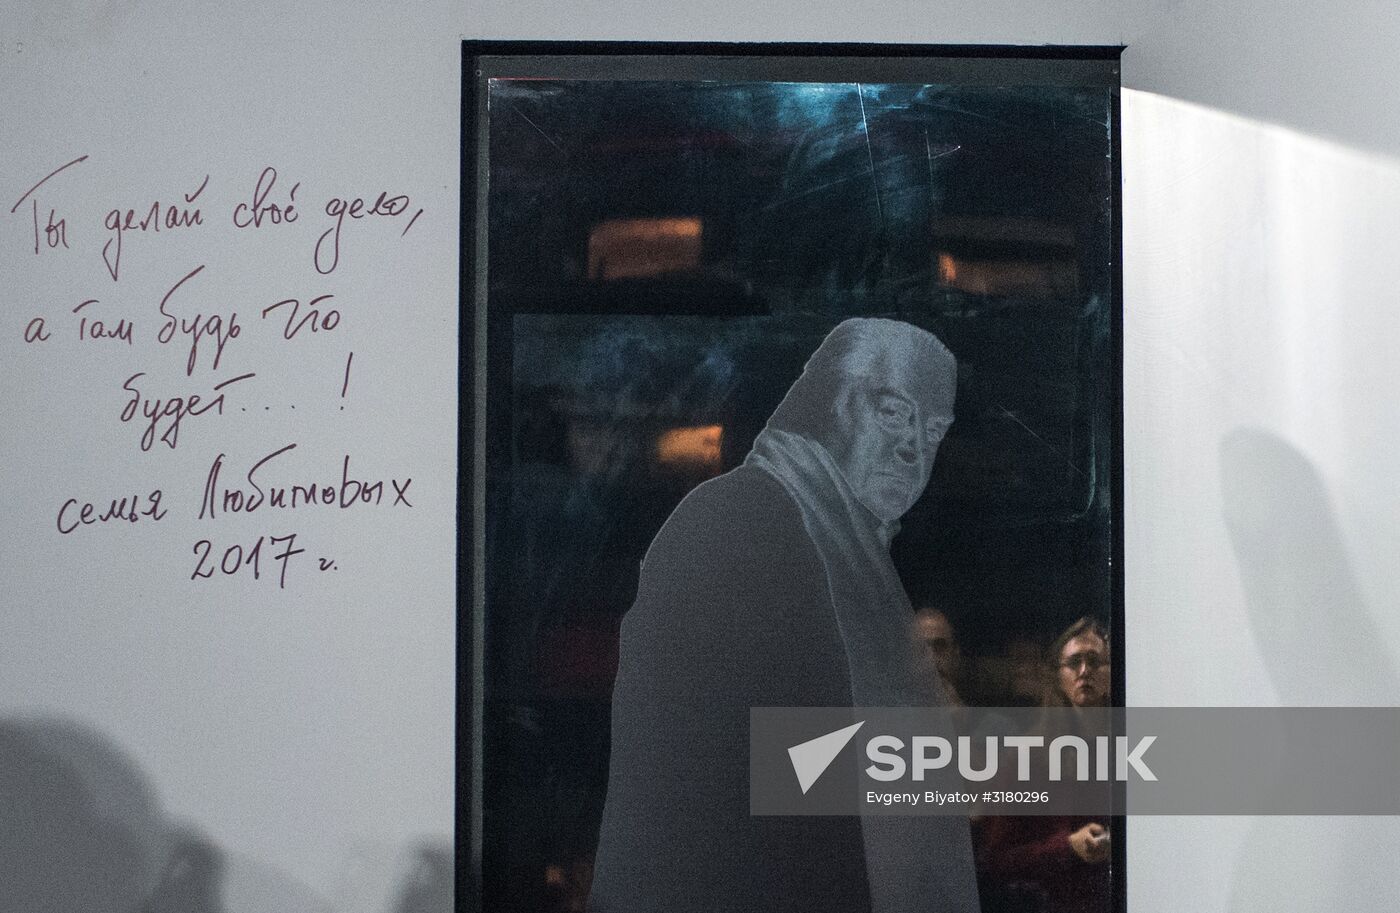 Ты делай своё дело,
а там будь что
будет... !
семья Любимовых
2017 г.
SPUTNIK
Evgeny Biyatov #3180296